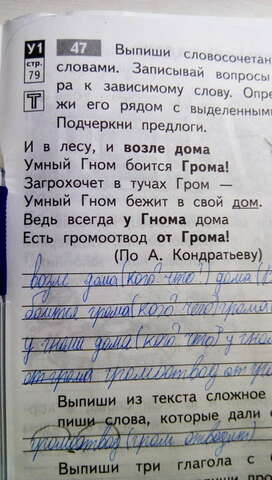 У1 47 Выпиши словосочетан
стр. 79 словами. Записывай вопросы
Т ра к зависимому слову. Опре
жи его рядом с выделенными
Подчеркни предлоги.
И в лесу, и возле дома
Умный Гном боится Грома!
Загрохочет в тучах Гром —
Умный Гном бежит в свой дом.
Ведь всегда у Гнома дома
Есть громоотвод от Грома!
(По А. Кондратьеву)
возле дома (кого? что?) дома (
боится грома (кого? чего?) грома
у гнома дома (кого? что?) у гно
от грома громоотвод от гро
Выпиши из текста сложное
пиши слова, которые дали
громоотвод (гром отводит)
Выпиши три глагола с